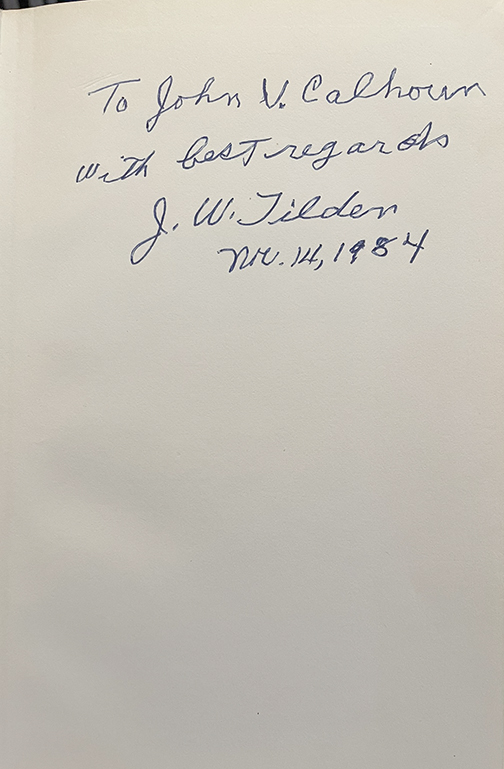 To John V. Calhoun
with best regards
J. W. Tilden
Nov. 14, 1984